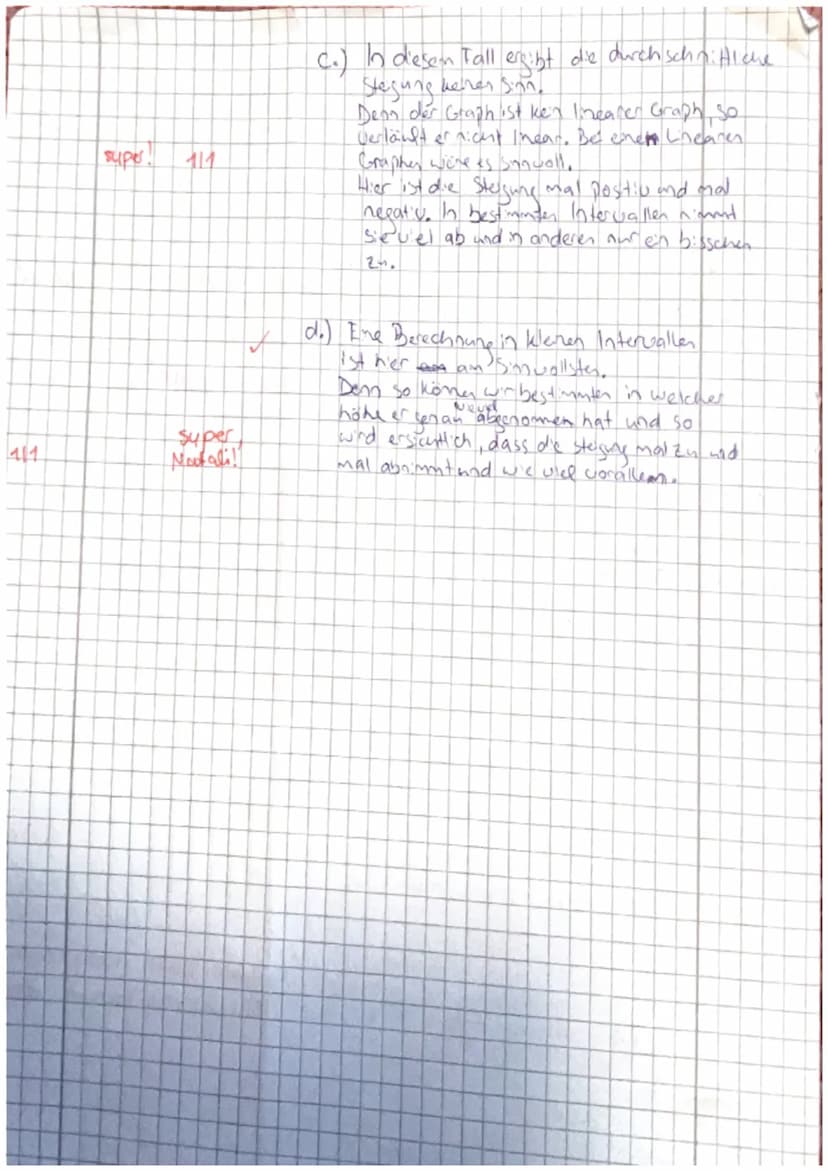 c.) In diesem Fall ergibt die durchschnittliche
Steigung keinen Sinn.
Denn der Graph ist kein linearer Graph, so
verläuft er nicht linear. Bei einem linearen
Graphen wäre es sinnvoll.
super! 1/1
Hier ist die Steigung mal positiv und mal
negativ. In bestimmten Intervallen nimmt
sie viel ab und in anderen nur ein bisschen
zu.
d.) Eine Berechnung in kleinen Intervallen
ist hier am Sinnvollsten.
Denn so können wir bestimmten in welcher
höhe er genau abgenommen hat und so
wird ersichtlich, dass die Steigung mal zu und
mal abnimmt und wie viel vorallem.
super,
Natali!
1/1